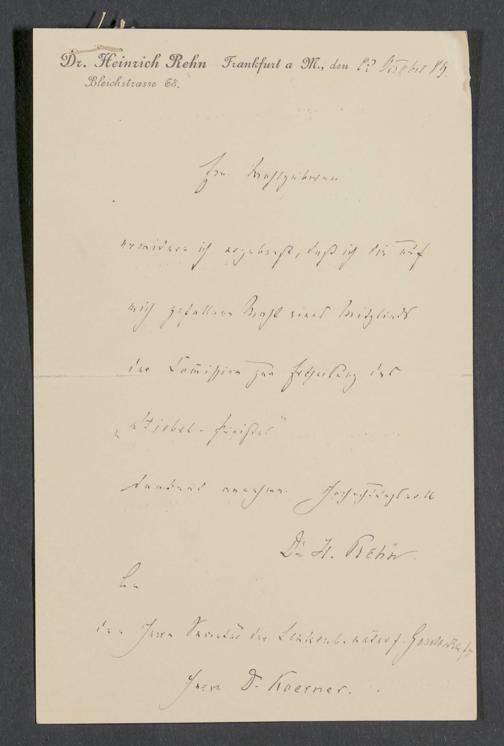 Dr. Heinrich Rehn Frankfurt a M., den 12 October 89
Bleichstrasse 68.
Ew. Wohlgeboren
erwidere ich ergebenst, daß ich die auf
mich gefallene Wahl eines Mitglieds
der Com̅ission zur Ertheilung des
„Stiebel-Preises“
dankend annehme. Hochachtungsvoll
Dr H. Rehn.
An
den Herrn Secretär der Senckenb. naturf. Gesellschaft
Herrn Dr Koerner.